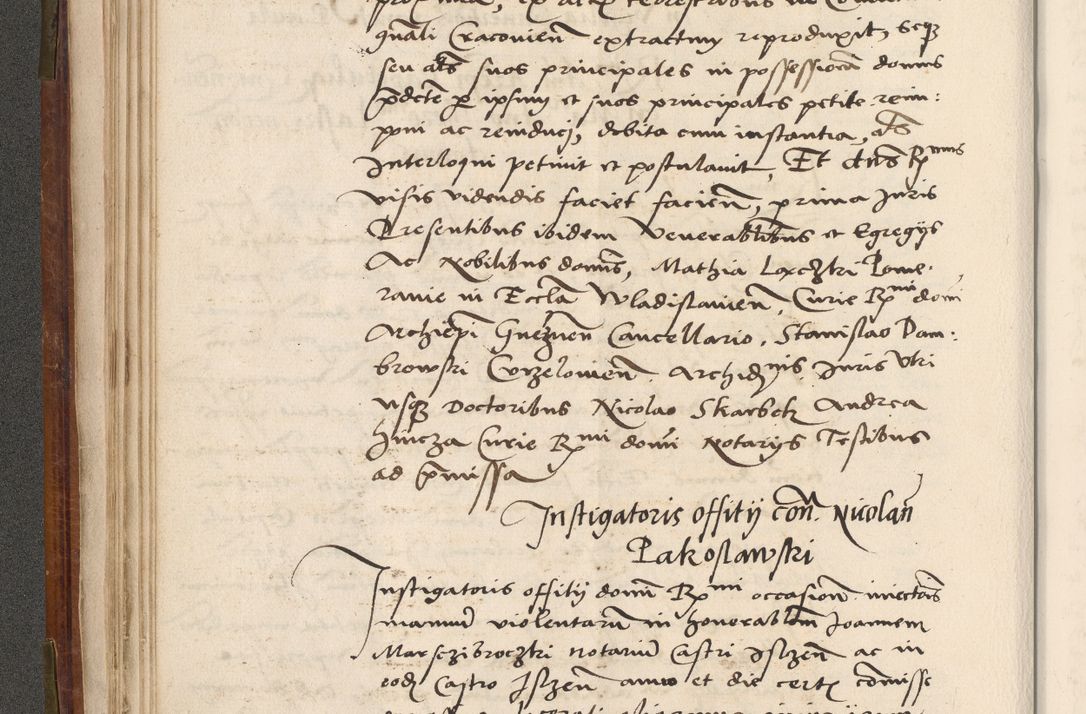 quali Cracovien̄ extractum reproduxit, seq̄
seu al̄s suos principales in possessionē domus
p̄dictē p̱ ipsum et suos principales petite rein:
poni ac reinduci, debita cum instantia, al̄s
Interloqui petivit et postulavit, Et dn̄s R̄mus
visis videndis faciet facien̄, prima Juris
Presentibus ibidem Venerabilibus et Egregijs
Ac Nobilibus domīs, Mathia Lęczki Pome:
ranie in Eccl̄a Wladislavien̄, Curie R̄mi dom̄
Archiep̄i Gnezn̄en Cancellario, Stanislao Dam:
browski Curzelovien̄. Archid̄nis Juris Utri
usq̄ Doctoribus Nicolao Skarbek Andrea
hincza Curie R̄mi domī Notarijs Testibus
ad p̄missa
Instigatoris offitij con̄. Nicolan̄
Pakoslawski
Instigatoris offitij domī R̄mi occasione iniectōis
manuū violentarū in honorabilem Joannem
Marsczibroczki notariū Castri Ilzen̄ ac in
eod̄ Castro Ilzen̄ anno et die certis cōmisse